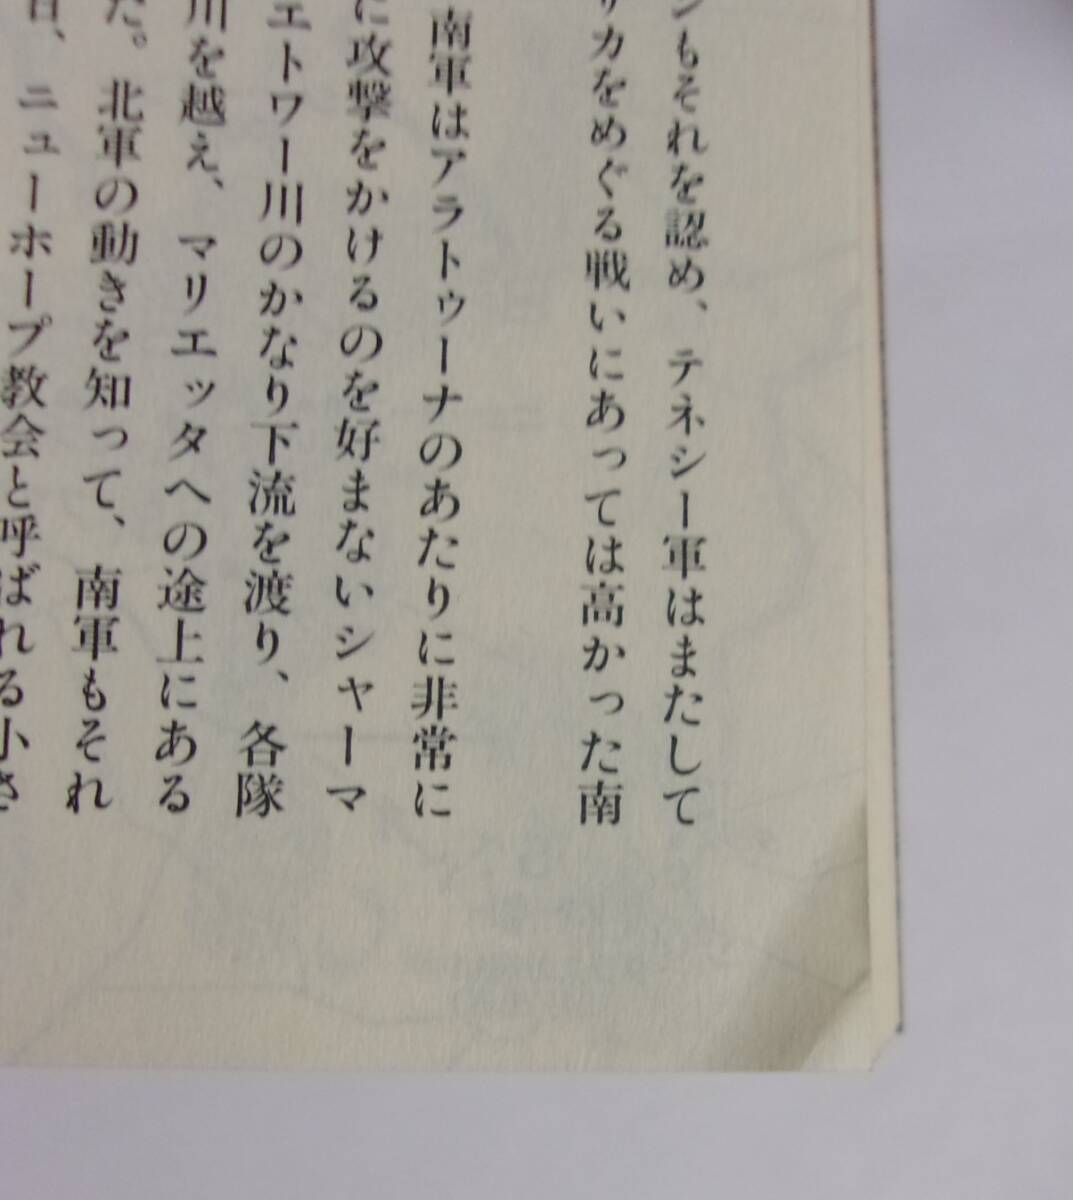 ンもそれを認め、テネシー軍はまたして
リカをめぐる戦いにあっては高かった南
南軍はアラトゥーナのあたりに非常に
に攻撃をかけるのを好まないシャーマ
エトワー川のかなり下流を渡り、各隊
川を越え、マリエッタへの途上にある
た。北軍の動きを知って、南軍もそれ
日、ニューホープ教会と呼ばれる小さ